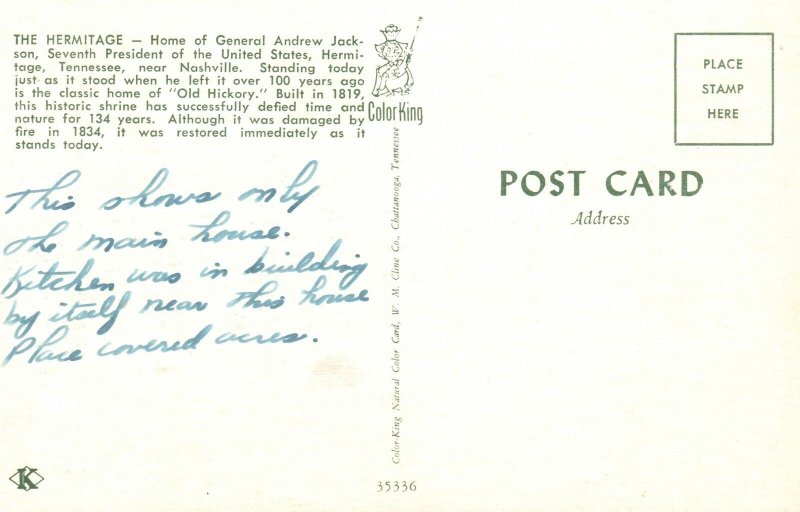 THE HERMITAGE — Home of General Andrew Jack-
son, Seventh President of the United States, Hermi-
tage, Tennessee, near Nashville. Standing today
just as it stood when he left it over 100 years ago
is the classic home of "Old Hickory." Built in 1819,
this historic shrine has successfully defied time and
nature for 134 years. Although it was damaged by
fire in 1834, it was restored immediately as it
stands today.
This shows only
the main house.
Kitchen was in building
by itself near this house
Place covered acres.
K
ColorKing
Color-King Natural Color Card, W. M. Cline Co., Chattanooga, Tennessee
35336
PLACE
STAMP
HERE
POST CARD
Address